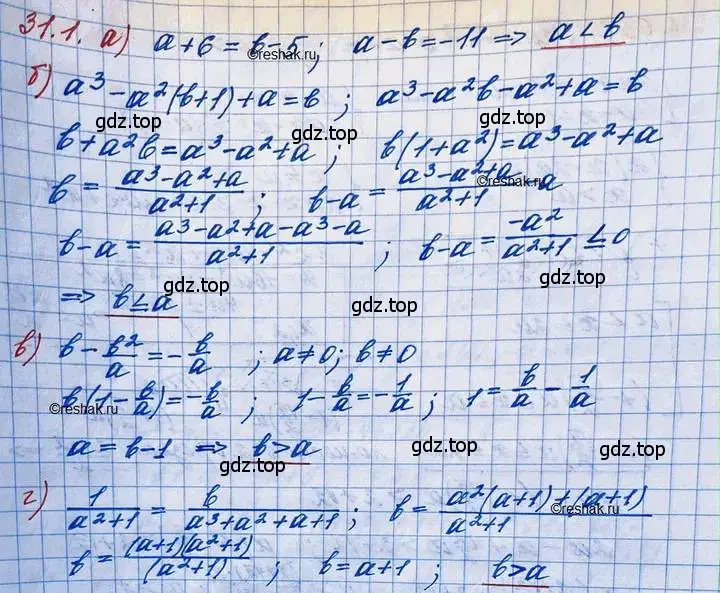 31.1. а) a+6=b-5; a-b=-11 => a<b
©reshak.ru
б) a³-a²(b+1)+a=b; a³-a²b-a²+a=b
gdz.top gdz.top
b+a²b=a³-a²+a; b(1+a²)=a³-a²+a
b = (a³-a²+a)/(a²+1); b-a = (a³-a²+a)/(a²+1) - a
©reshak.ru
b-a = (a³-a²+a-a³-a)/(a²+1); b-a = -a²/(a²+1) ≤ 0
gdz.top gdz.top
=> b≤a
gdz.top gdz.top
в) b - b²/a = -b/a; a≠0; b≠0
b(1 - b/a) = -b/a; 1 - b/a = -1/a; 1 = b/a - 1/a
©reshak.ru
a=b-1 => b>a
gdz.top gdz.top gdz.top
г) 1/(a²+1) = b/(a³+a²+a+1); b = (a²(a+1)+(a+1))/(a²+1)
©reshak.ru
b = (a+1)(a²+1)/(a²+1); b=a+1; b>a